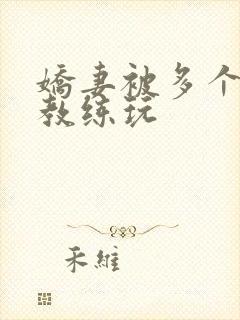 嬌妻被多个
教练玩
禾維